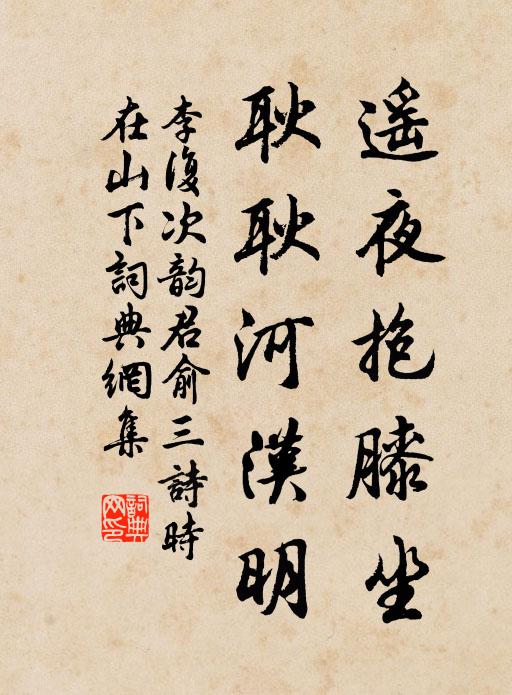 遥夜抱膝坐
耿耿河漢明
李復次韵君俞三詩時
在山下詞典網集
詞典网印